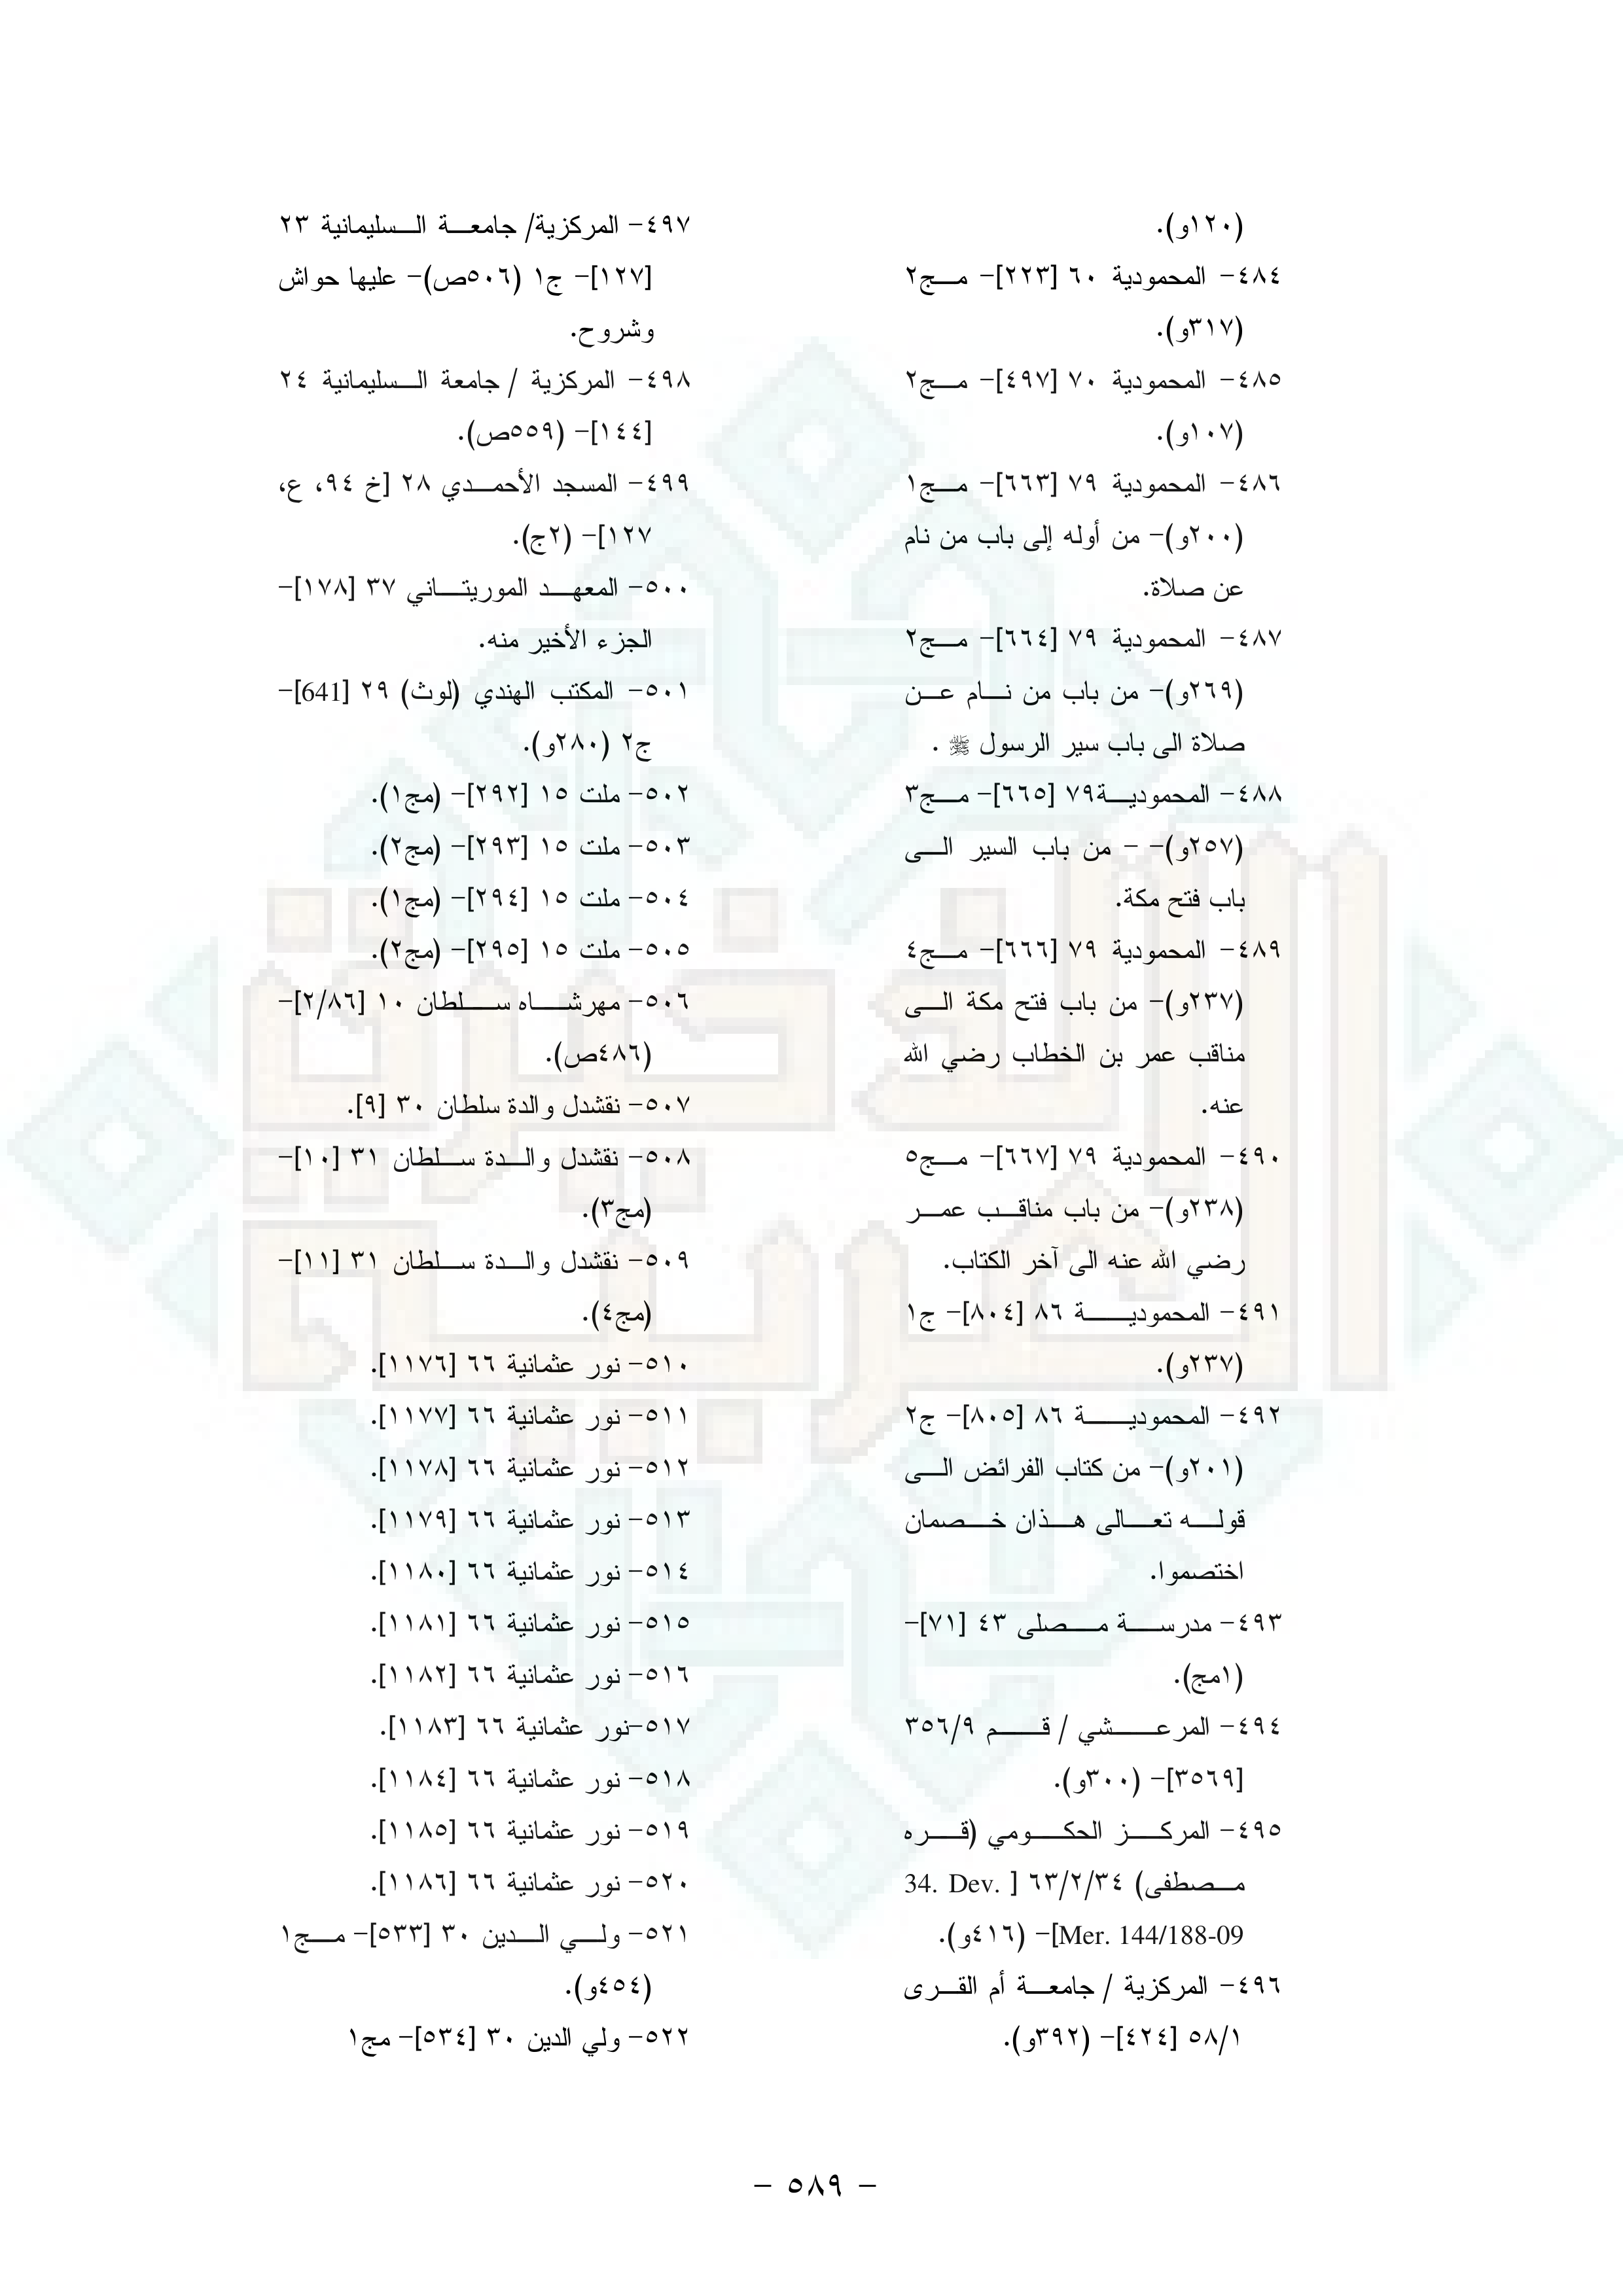 (١٢٠و).
٤٨٤- المحمودية ٦٠ [٢٢٣]- مج٢
(٣١٧و).
٤٨٥- المحمودية ٧٠ [٤٩٧]- مج٢
(١٠٧و).
٤٨٦- المحمودية ٧٩ [٦٦٣]- مج١
(٢٠٠و)- من أوله إلى باب من نام
عن صلاة.
٤٨٧- المحمودية ٧٩ [٦٦٤]- مج٢
(٢٦٩و)- من باب من نام عن
صلاة الى باب سير الرسول ﷺ .
٤٨٨- المحمودية٧٩ [٦٦٥]- مج٣
(٢٥٧و)- - من باب السير الى
باب فتح مكة.
٤٨٩- المحمودية ٧٩ [٦٦٦]- مج٤
(٢٣٧و)- من باب فتح مكة الى
مناقب عمر بن الخطاب رضي الله
عنه.
٤٩٠- المحمودية ٧٩ [٦٦٧]- مج٥
(٢٣٨و)- من باب مناقب عمر
رضي الله عنه الى آخر الكتاب.
٤٩١- المحمودية ٨٦ [٨٠٤]- ج١
(٢٣٧و).
٤٩٢- المحمودية ٨٦ [٨٠٥]- ج٢
(٢٠١و)- من كتاب الفرائض الى
قوله تعالى هذان خصمان
اختصموا.
٤٩٣- مدرسة مصلى ٤٣ [٧١]-
(١مج).
٤٩٤- المرعشي / قم ٣٥٦/٩
[٣٥٦٩]- (٣٠٠و).
٤٩٥- المركز الحكومي (قره
مصطفى) ٦٣/٢/٣٤ [ 34. Dev.
Mer. 144/188-09]- (٤١٦و).
٤٩٦- المركزية / جامعة أم القرى
٥٨/١ [٤٢٤]- (٣٩٢و).
٤٩٧- المركزية/ جامعة السليمانية ٢٣
[١٢٧]- ج١ (٥٠٦ص)- عليها حواش
وشروح.
٤٩٨- المركزية / جامعة السليمانية ٢٤
[١٤٤]- (٥٥٩ص).
٤٩٩- المسجد الأحمدي ٢٨ [خ ٩٤، ع،
١٢٧]- (٢ج).
٥٠٠- المعهد الموريتاني ٣٧ [١٧٨]-
الجزء الأخير منه.
٥٠١- المكتب الهندي (لوث) ٢٩ [641]-
ج٢ (٢٨٠و).
٥٠٢- ملت ١٥ [٢٩٢]- (مج١).
٥٠٣- ملت ١٥ [٢٩٣]- (مج٢).
٥٠٤- ملت ١٥ [٢٩٤]- (مج١).
٥٠٥- ملت ١٥ [٢٩٥]- (مج٢).
٥٠٦- مهرشاه سلطان ١٠ [٢/٨٦]-
(٤٨٦ص).
٥٠٧- نقشدل والدة سلطان ٣٠ [٩].
٥٠٨- نقشدل والدة سلطان ٣١ [١٠]-
(مج٣).
٥٠٩- نقشدل والدة سلطان ٣١ [١١]-
(مج٤).
٥١٠- نور عثمانية ٦٦ [١١٧٦].
٥١١- نور عثمانية ٦٦ [١١٧٧].
٥١٢- نور عثمانية ٦٦ [١١٧٨].
٥١٣- نور عثمانية ٦٦ [١١٧٩].
٥١٤- نور عثمانية ٦٦ [١١٨٠].
٥١٥- نور عثمانية ٦٦ [١١٨١].
٥١٦- نور عثمانية ٦٦ [١١٨٢].
٥١٧-نور عثمانية ٦٦ [١١٨٣].
٥١٨- نور عثمانية ٦٦ [١١٨٤].
٥١٩- نور عثمانية ٦٦ [١١٨٥].
٥٢٠- نور عثمانية ٦٦ [١١٨٦].
٥٢١- ولي الدين ٣٠ [٥٣٣]- مج١
(٤٥٤و).
٥٢٢- ولي الدين ٣٠ [٥٣٤]- مج١
- ٥٨٩ -